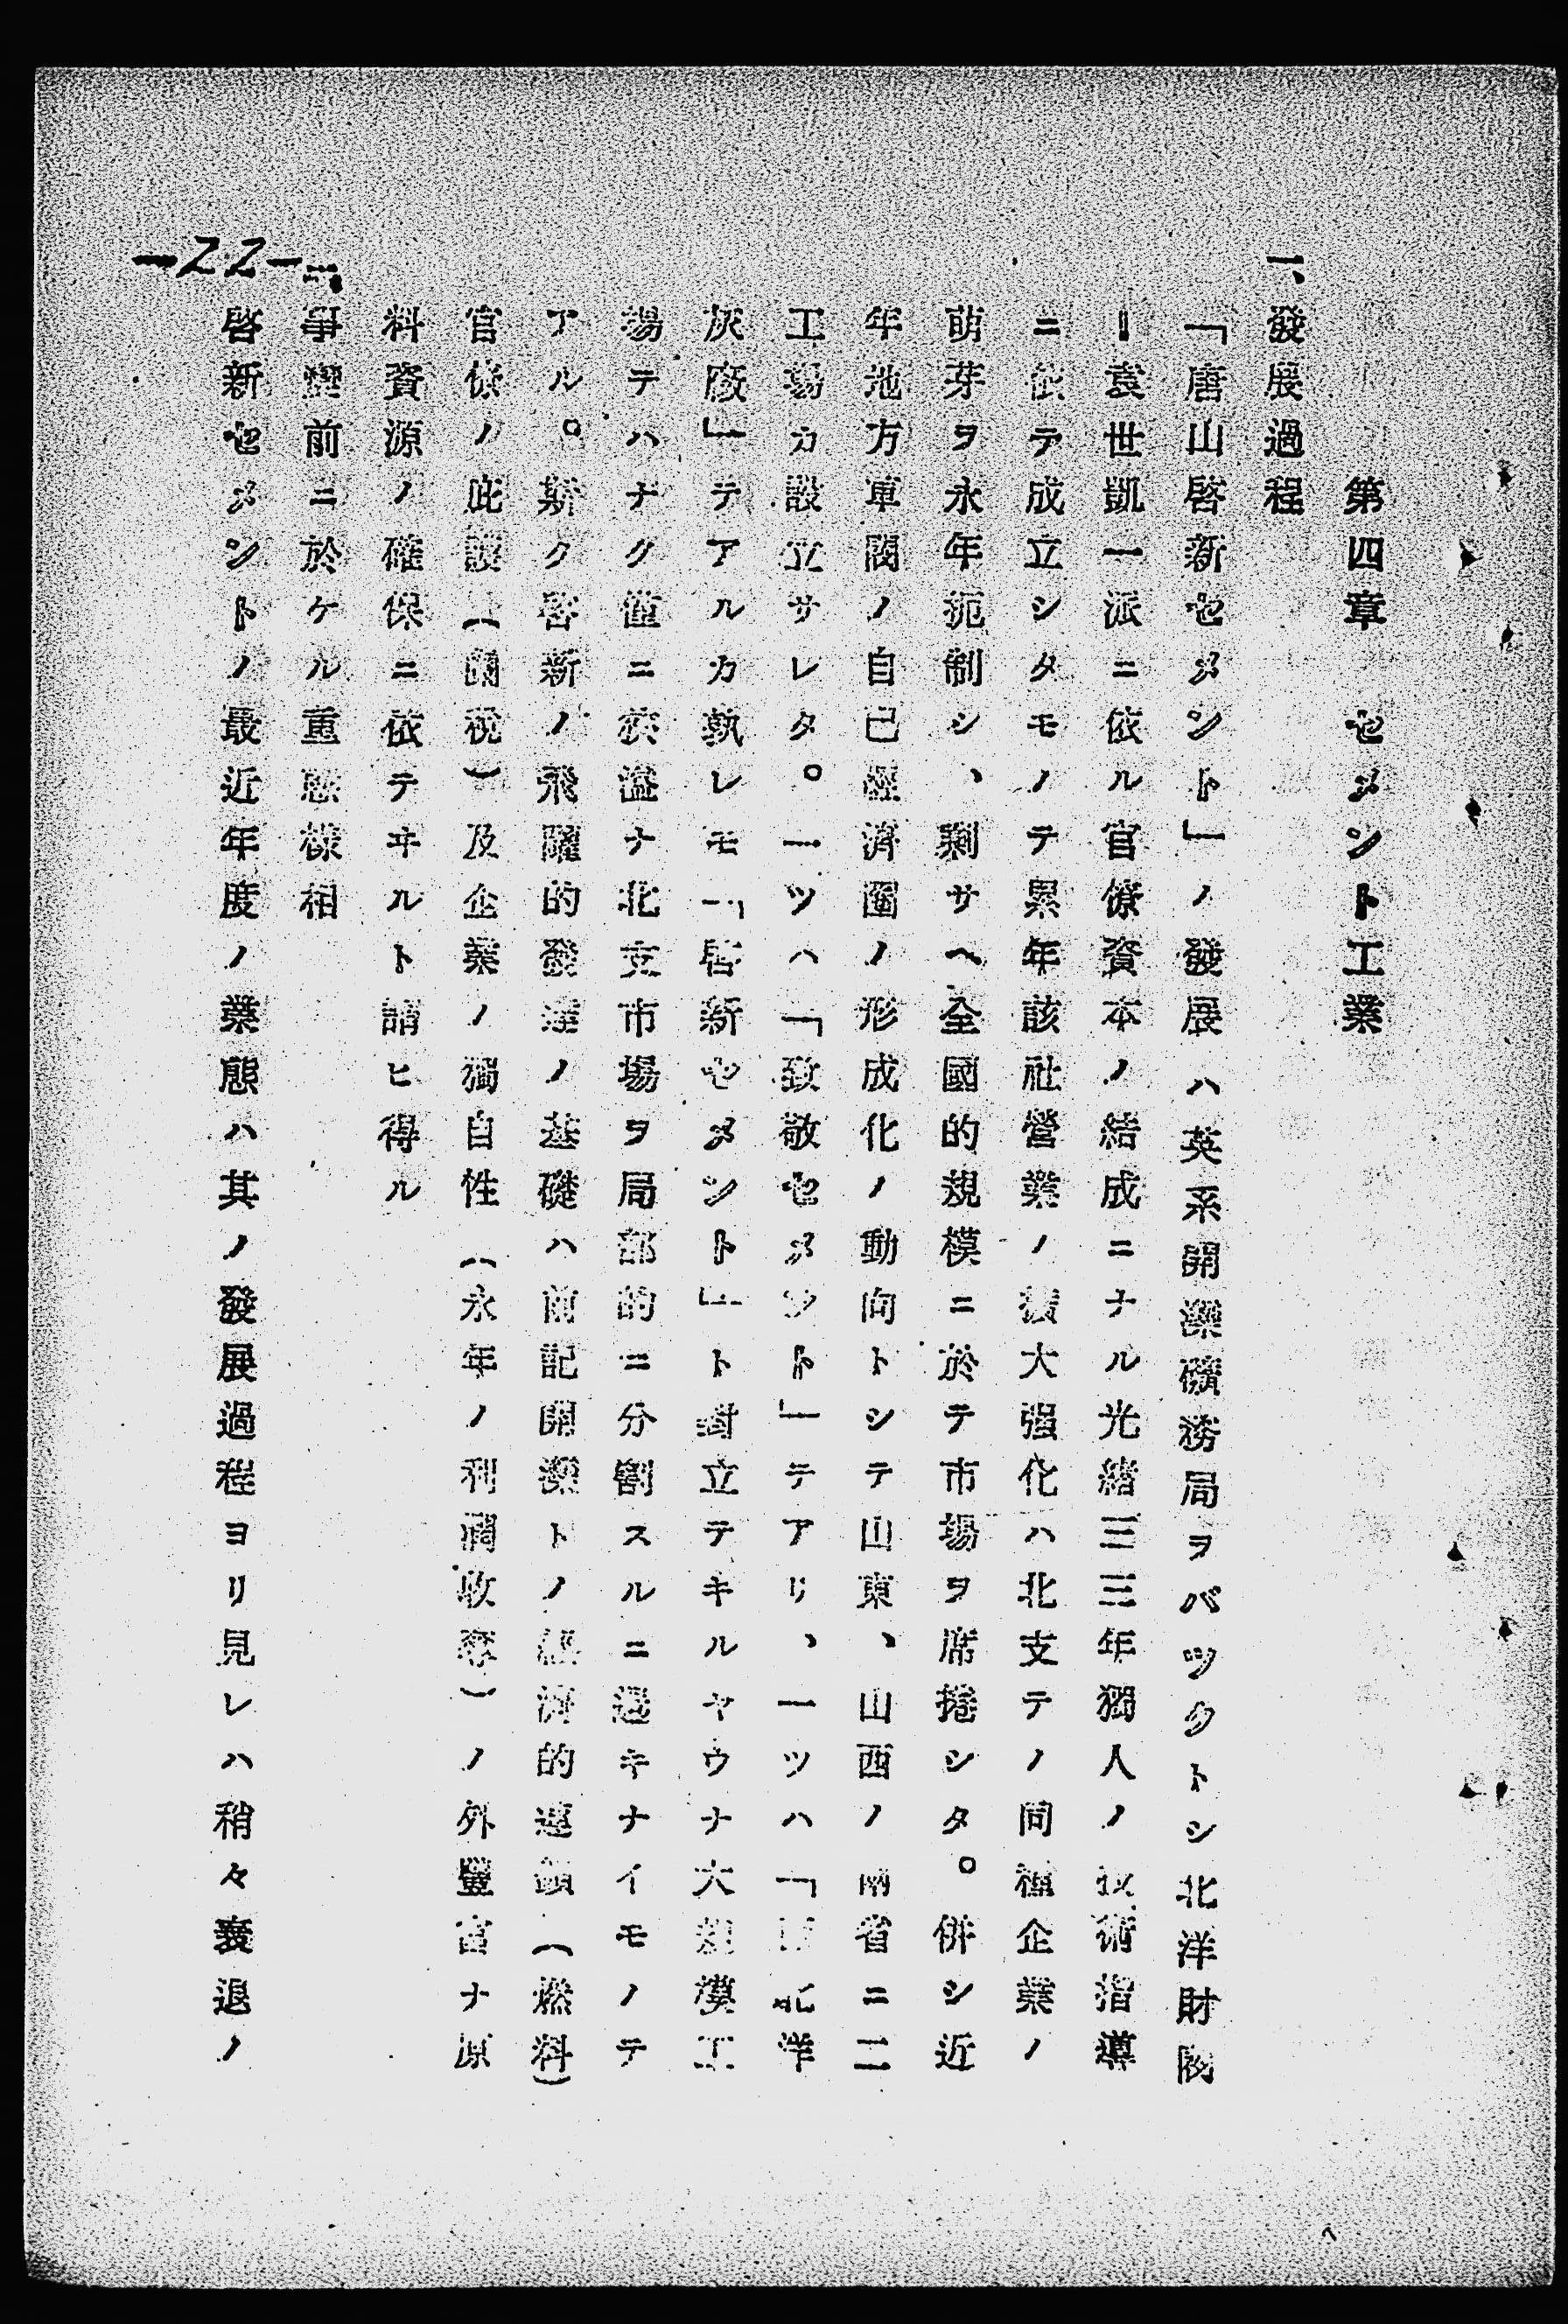 第四章 セメント工業
一、發展過程
「唐山啓新セメント」ノ發展ハ英系開灤礦務局ヲバツクトシ北洋財閥
ー袁世凱一派ニ依ル官僚資本ノ結成ニナル光緒三三年獨人ノ技術指導
ニ依テ成立シタモノテ累年該社營業ノ擴大强化ハ北支テノ同種企業ノ
萌芽ヲ永年扼制シ、剩サヘ全國的規模ニ於テ市場ヲ席捲シタ。併シ近
年地方軍閥ノ自己經濟圏ノ形成化ノ動向トシテ山東、山西ノ兩省ニ二
工場カ設立サレタ。一ツハ「致敬セメント」テアリ、一ツハ「西北洋
灰廠」テアルカ孰レモ「啓新セメント」ト對立テキルヤウナ大規模工
場テハナク僅ニ狹溢ナ北支市場ヲ局部的ニ分割スルニ過キナイモノテ
アル。斯ク啓新ノ飛躍的發達ノ基礎ハ前記開灤トノ經濟的連鎖（燃料）
官僚ノ庇護（關稅）及企業ノ獨自性（永年ノ利潤收奪）ノ外豐富ナ原
料資源ノ確保ニ依テヰルト謂ヒ得ル
二、事變前ニ於ケル重態樣相
啓新セメントノ最近年度ノ業態ハ其ノ發展過程ヨリ見レハ稍々衰退ノ
—22—